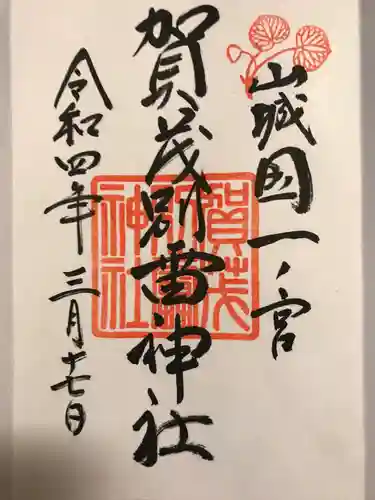 山城国一ノ宮
賀茂別雷神社
令和四年三月十七日
賀茂別雷神社